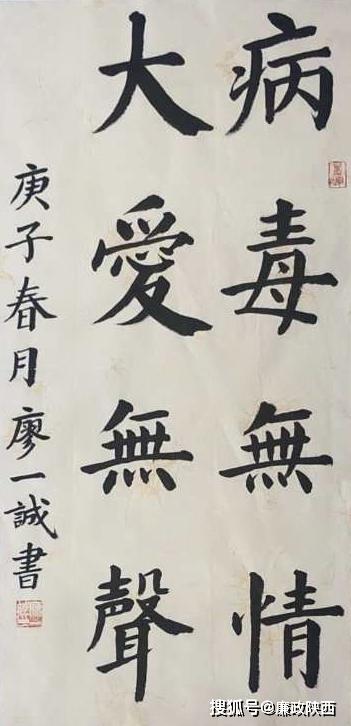 病毒無情
大愛無聲
庚子春月廖一誠書
搜狐号@廉政陕西